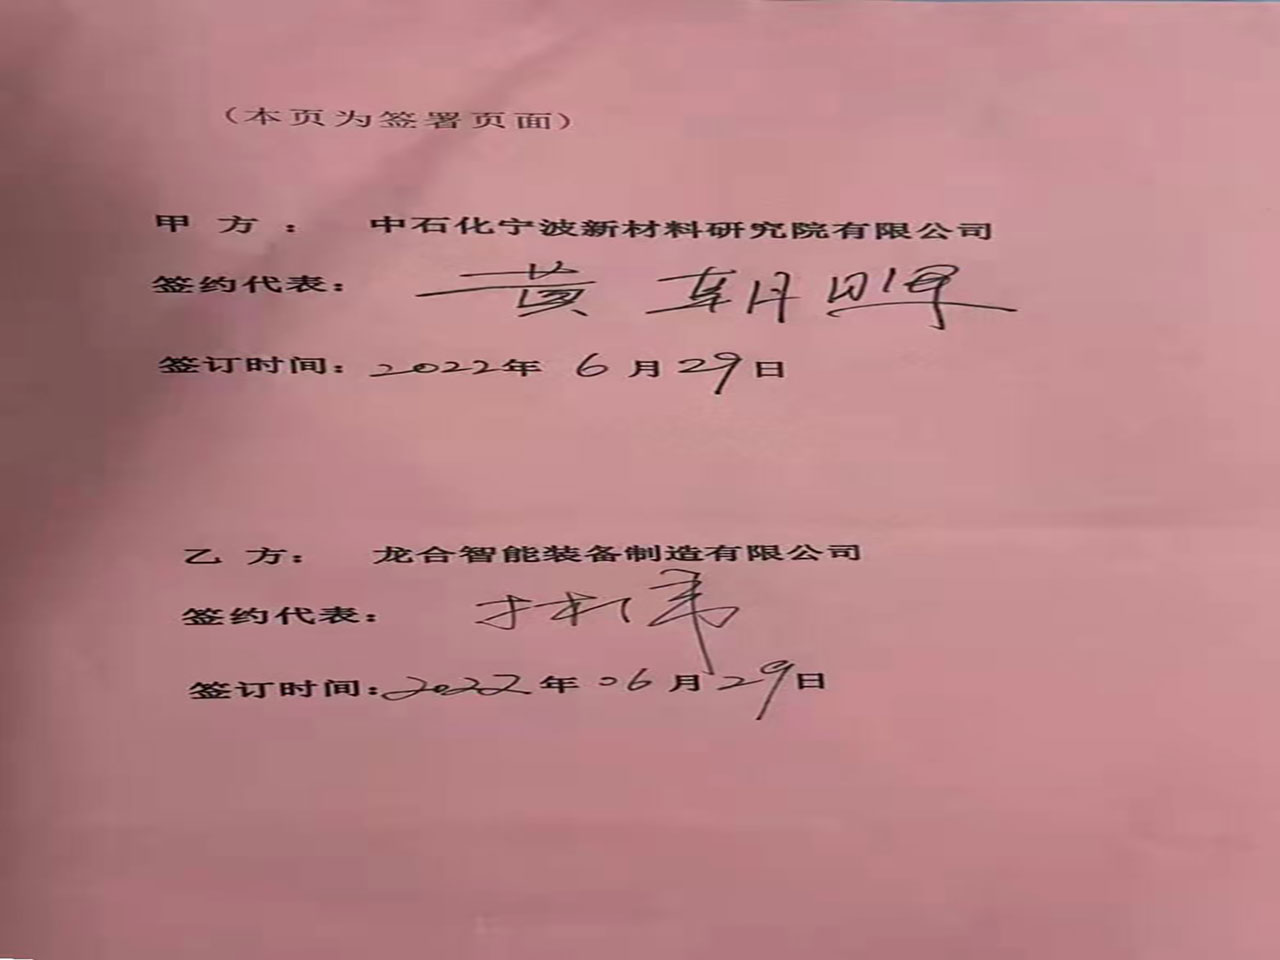 （本页为签署页面）
甲 方 ： 中石化宁波新材料研究院有限公司
签约代表： 黄朝晖
签订时间：2022年 6月29日
乙 方： 龙合智能装备制造有限公司
签约代表：
签订时间：2022年 06月29日